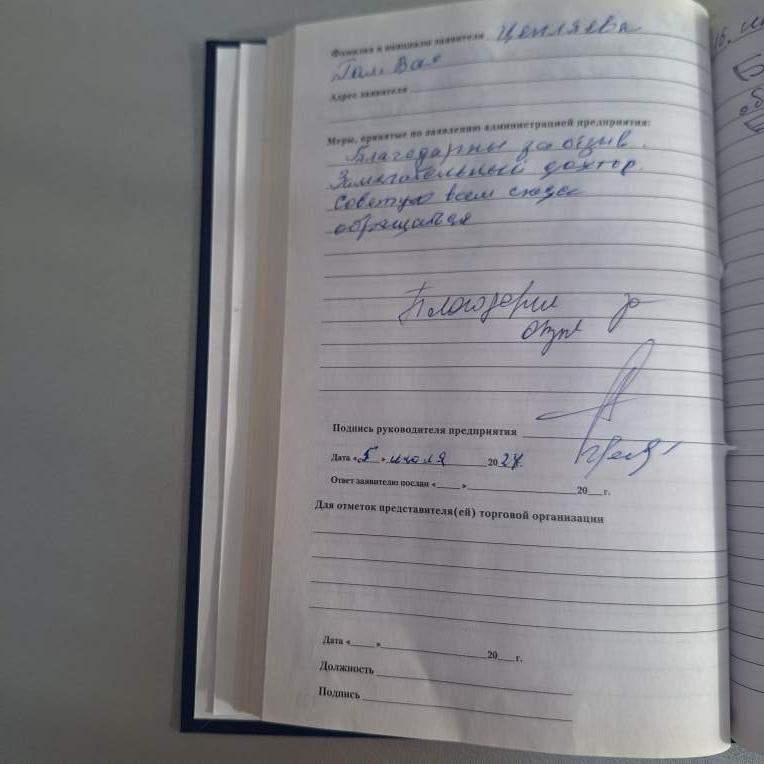 Фамилия и инициалы заявителя Цепляева
Гал. Вас
Адрес заявителя
Меры, принятые по заявлению администрацией предприятия:
Благодарны за отзыв.
Замечательный доктор.
Советую всем сюда
обращаться
Благодарим за
отзыв
Подпись руководителя предприятия
Дата «5» июля 2024.
Ответ заявителю послан «___» 20__г.
Для отметок представителя(ей) торговой организации
Дата «___» 20__г.
Должность
Подпись